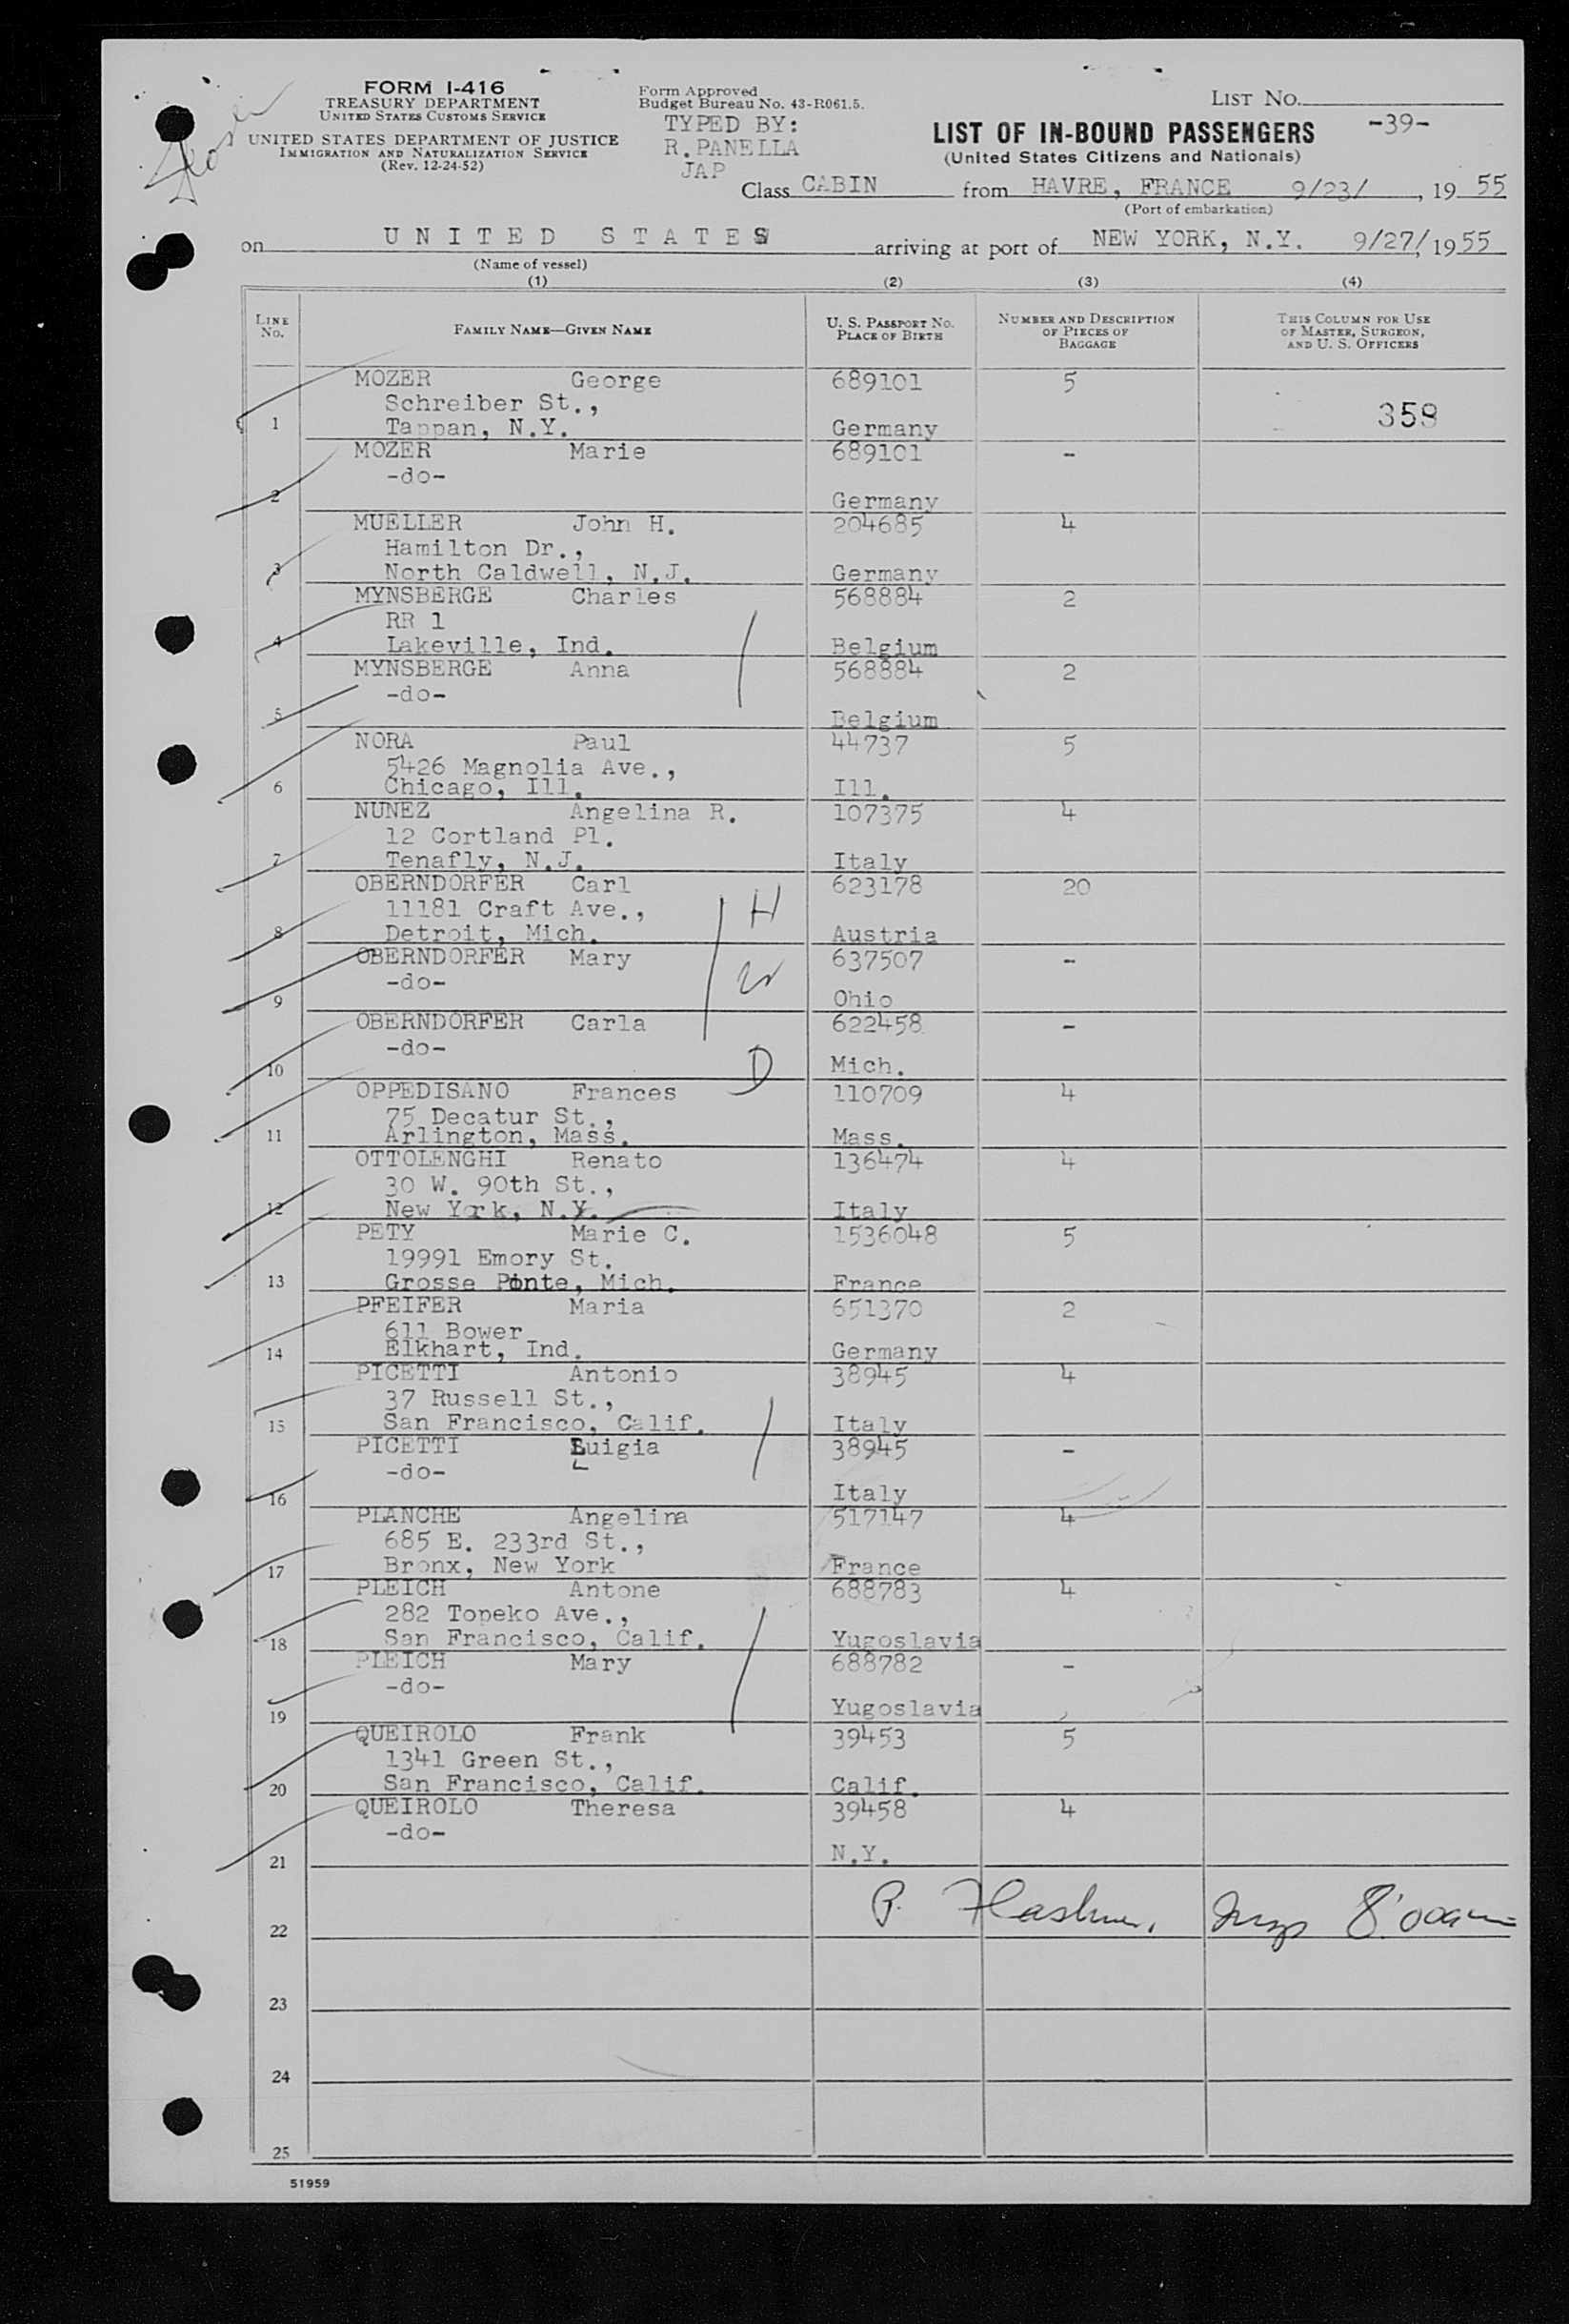 FORM I-416
TREASURY DEPARTMENT
UNITED STATES CUSTOMS SERVICE
UNITED STATES DEPARTMENT OF JUSTICE
IMMIGRATION AND NATURALIZATION SERVICE
(Rev. 12-24-52)
Form Approved
Budget Bureau No. 43-R061.5.
TYPED BY:
R.PANELLA
JAP
LIST No.
LIST OF IN-BOUND PASSENGERS -39-
(United States Citizens and Nationals)
Class CABIN from HAVRE, FRANCE 9/23/, 19 55
(Port of embarkation)
on UNITED STATES arriving at port of NEW YORK, N.Y. 9/27/, 19 55
(Name of vessel)
(1) (2) (3) (4)
LINE No. FAMILY NAME—GIVEN NAME U. S. PASSPORT No. PLACE OF BIRTH NUMBER AND DESCRIPTION OF PIECES OF BAGGAGE THIS COLUMN FOR USE OF MASTER, SURGEON, AND U. S. OFFICERS
MOZER George 689101 5
Schreiber St.,
1 Tappan, N.Y. Germany 358
MOZER Marie 689101 -
-do-
2 Germany
MUELLER John H. 204685 4
Hamilton Dr.,
3 North Caldwell, N.J. Germany
MYNSBERGE Charles 568884 2
RR 1
4 Lakeville, Ind. Belgium
MYNSBERGE Anna 568884 2
-do-
5 Belgium
NORA Paul 44737 5
5426 Magnolia Ave.,
6 Chicago, Ill. Ill.
NUNEZ Angelina R. 107375 4
12 Cortland Pl.
7 Tenafly, N.J. Italy
OBERNDORFER Carl 623178 20
11181 Craft Ave., H
8 Detroit, Mich. Austria
OBERNDORFER Mary 637507 -
-do- W
9 Ohio
OBERNDORFER Carla 622458 -
-do-
10 D Mich.
OPPEDISANO Frances 110709 4
75 Decatur St.,
11 Arlington, Mass. Mass.
OTTOLENGHI Renato 136474 4
30 W. 90th St.,
12 New York, N.Y. Italy
PETY Marie C. 1536048 5
19991 Emory St.
13 Grosse Ponte, Mich. France
PFEIFER Maria 651370 2
611 Bower
14 Elkhart, Ind. Germany
PICETTI Antonio 38945 4
37 Russell St.,
15 San Francisco, Calif. Italy
PICETTI Luigia 38945 -
-do- L
16 Italy
PLANCHE Angelina 517147 4
685 E. 233rd St.,
17 Bronx, New York France
PLEICH Antone 688783 4
282 Topeko Ave.,
18 San Francisco, Calif. Yugoslavia
PLEICH Mary 688782 -
-do-
19 Yugoslavia
QUEIROLO Frank 39453 5
1341 Green St.,
20 San Francisco, Calif. Calif.
QUEIROLO Theresa 39458 4
-do-
21 N.Y.
22 P. 8:00am
23
24
25
51959